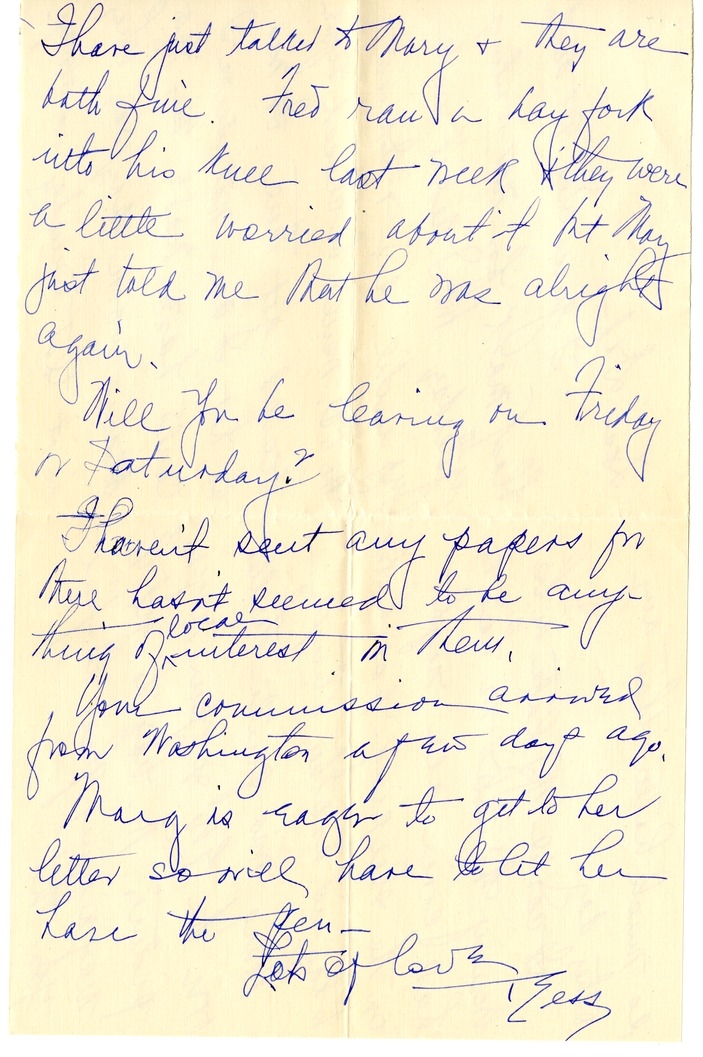 I have just talked to Mary & they are
both fine. Fred ran a hay fork
into his knee last week & they were
a little worried about it but May
just told me that he was alright
again.
Will you be leaving on Friday
or Saturday?
I haven't sent any papers for
there hasn't seemed to be any-
thing of local interest in them.
Your commission arrived
from Washington a few days ago.
Marg is eager to get to her
letter so will have to let her
have the pen—
Lots of love, Bess